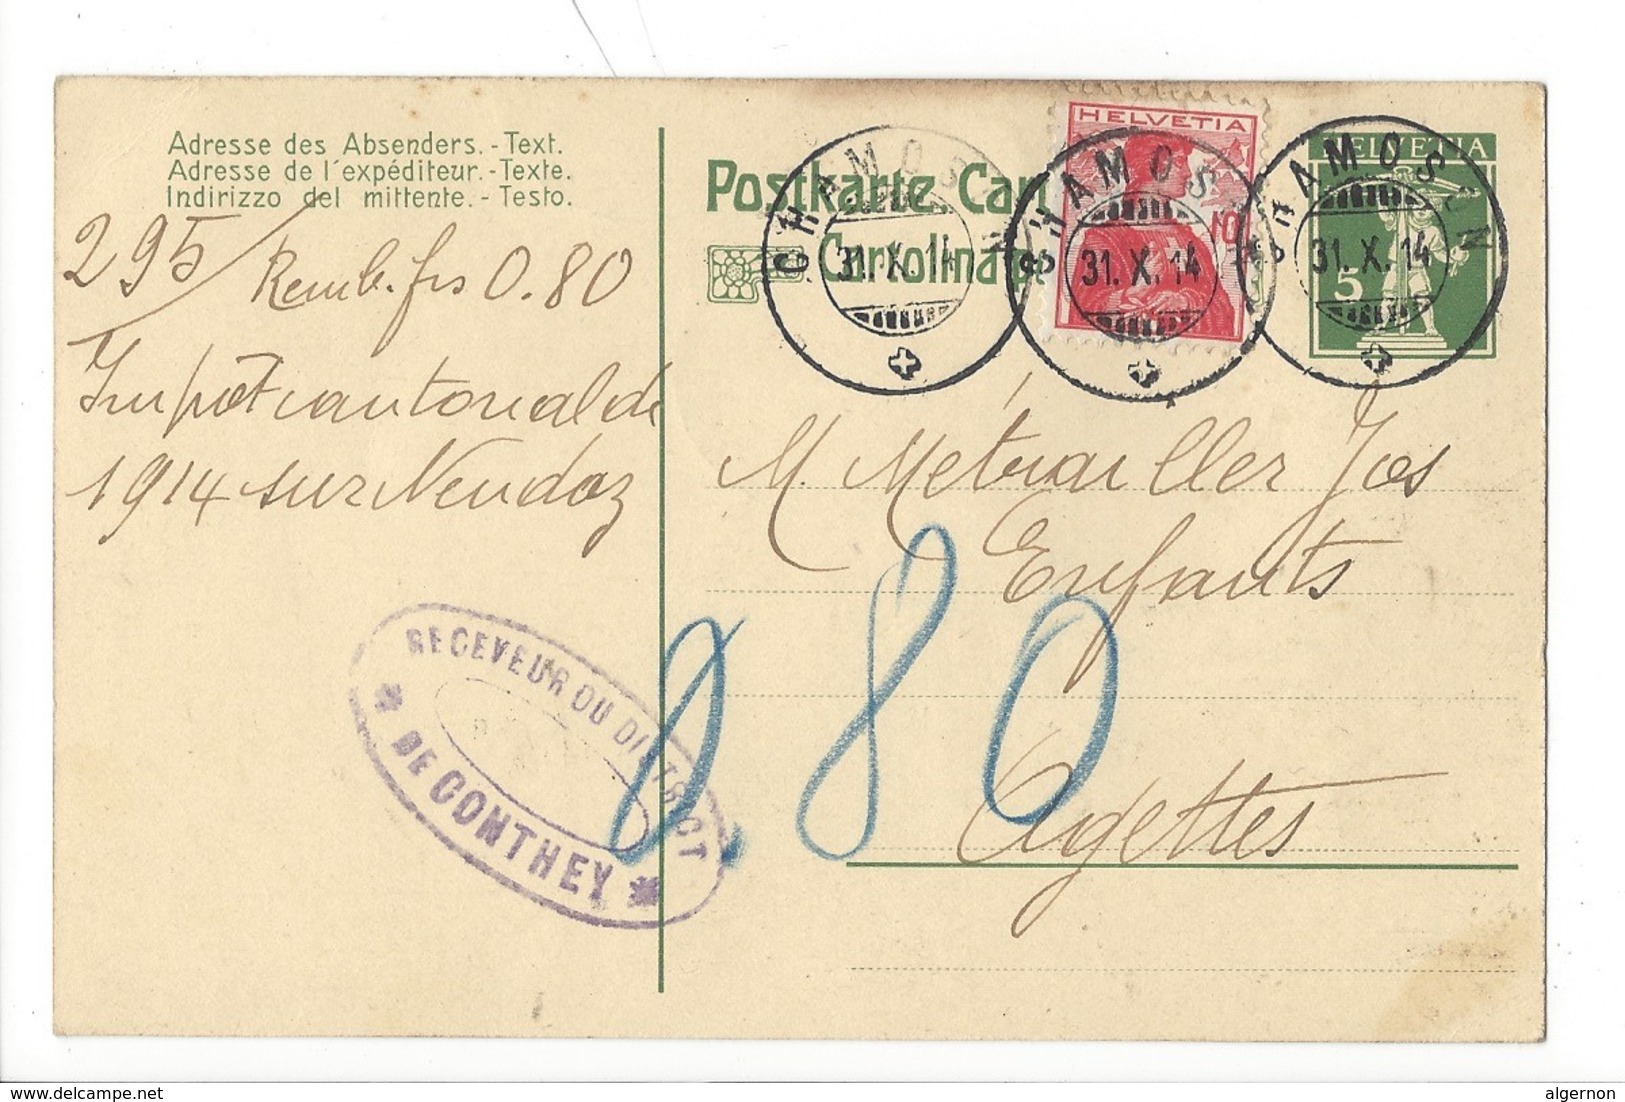 Adresse des Absenders. - Text.
Adresse de l'expéditeur. - Texte.
Indirizzo del mittente. - Testo.
295/ Remb. frs 0.80
Impôt cantonal de
1914 sur Nendaz
RECEVEUR DU DISTRICT
DE CONTHEY
Postkarte Cart
Cartolina
CHAMOSON
31.X.14
HELVETIA
10
CHAMOSON
31.X.14
HELVETIA
5
CHAMOSON
31.X.14
M. Métrailler Jos
Enfants
0.80
Agettes
algernon